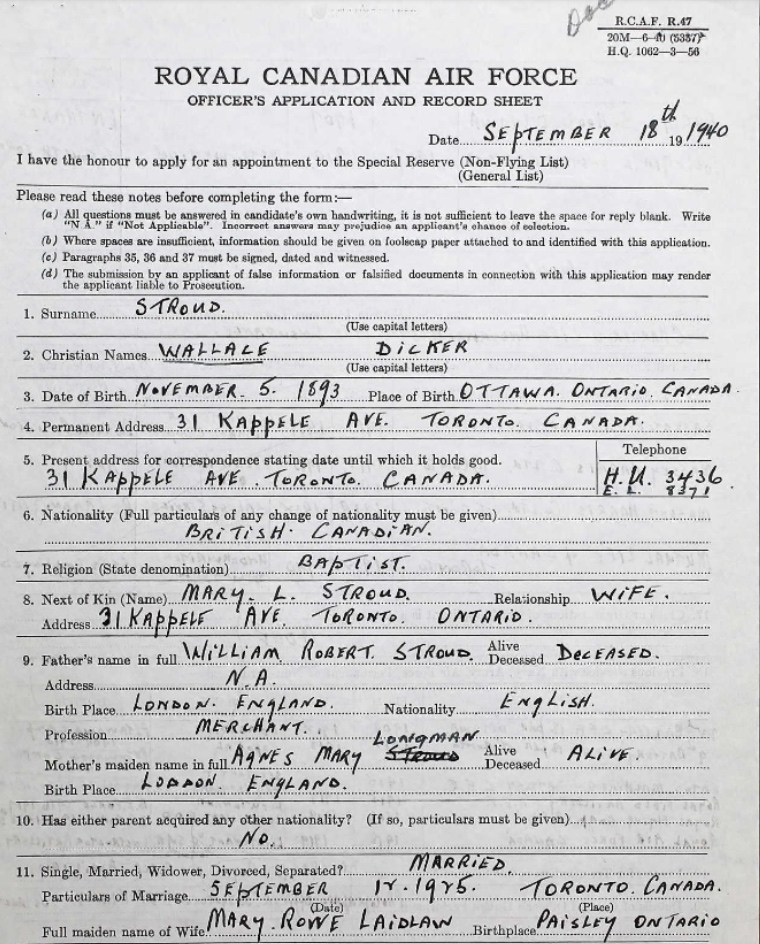 Doc
R.C.A.F. R.47
20M—6-40 (5337)
H.Q. 1062—3—56
ROYAL CANADIAN AIR FORCE
OFFICER'S APPLICATION AND RECORD SHEET
Date SEPTEMBER 18th 19 1940
I have the honour to apply for an appointment to the Special Reserve (Non-Flying List)
(General List)
Please read these notes before completing the form:—
(a) All questions must be answered in candidate's own handwriting, it is not sufficient to leave the space for reply blank. Write
"N A." if "Not Applicable". Incorrect answers may prejudice an applicant's chance of selection.
(b) Where spaces are insufficient, information should be given on foolscap paper attached to and identified with this application.
(c) Paragraphs 35, 36 and 37 must be signed, dated and witnessed.
(d) The submission by an applicant of false information or falsified documents in connection with this application may render
the applicant liable to Prosecution.
1. Surname STROUD.
(Use capital letters)
2. Christian Names WALLACE DICKER
(Use capital letters)
3. Date of Birth NOVEMBER. 5. 1893 Place of Birth OTTAWA. ONTARIO. CANADA.
4. Permanent Address 31 KAPPELE AVE. TORONTO. CANADA.
5. Present address for correspondence stating date until which it holds good. Telephone
31 KAPPELE AVE. TORONTO. CANADA. H.U. 3436
E.L. 8371
6. Nationality (Full particulars of any change of nationality must be given)
BRITISH. CANADIAN.
7. Religion (State denomination) BAPTIST.
8. Next of Kin (Name) MARY. L. STROUD. Relationship WIFE.
Address 31 KAPPELE AVE. TORONTO. ONTARIO.
9. Father's name in full WILLIAM ROBERT. STROUD. Alive Deceased DECEASED.
Address N.A.
Birth Place LONDON. ENGLAND. Nationality ENGLISH.
Profession MERCHANT.
Mother's maiden name in full AGNES MARY STROUD LONGMAN Alive Deceased ALIVE.
Birth Place LONDON. ENGLAND.
10. Has either parent acquired any other nationality? (If so, particulars must be given)
NO.
11. Single, Married, Widower, Divorced, Separated? MARRIED.
Particulars of Marriage SEPTEMBER 12. 1925. TORONTO. CANADA.
(Date) (Place)
Full maiden name of Wife MARY. ROWE LAIDLAW Birthplace PAISLEY ONTARIO